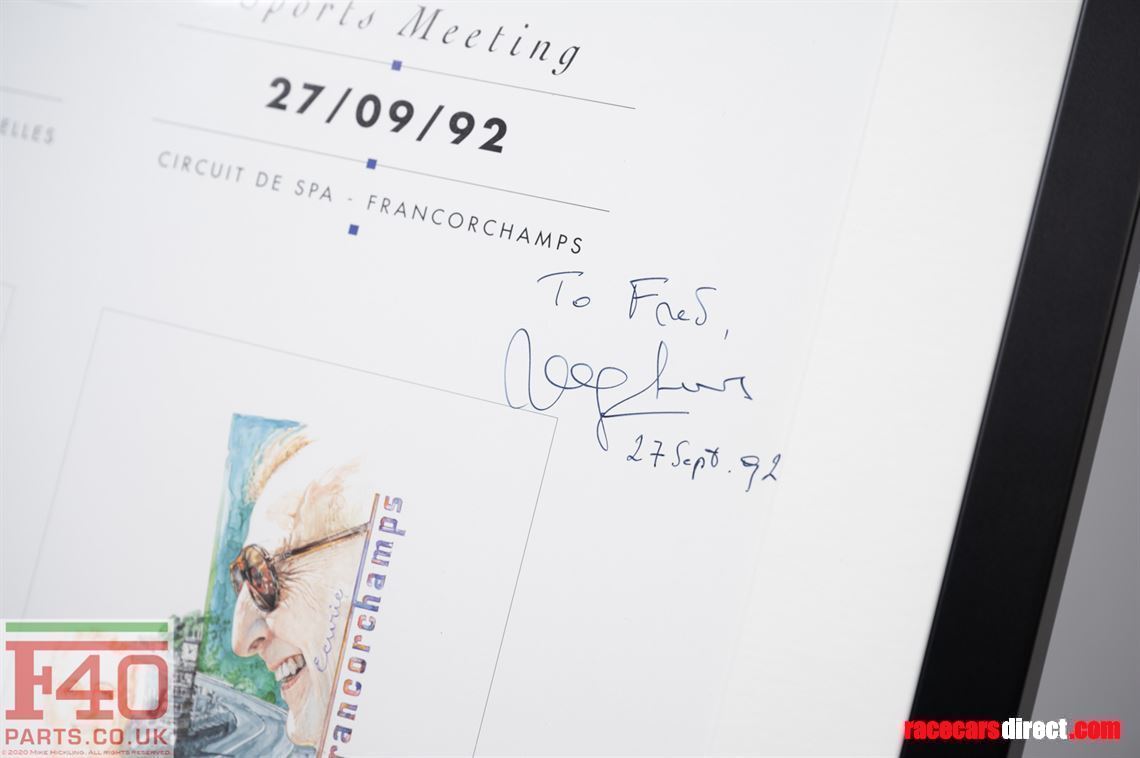 Sports Meeting
27/09/92
ELLES
CIRCUIT DE SPA - FRANCORCHAMPS
To Fred,
27 Sept. 92
Ecurie
rancorchamps
F40
PARTS.CO.UK
©2020 MIKE HICKLING. ALL RIGHTS RESERVED.
racecarsdirect.com